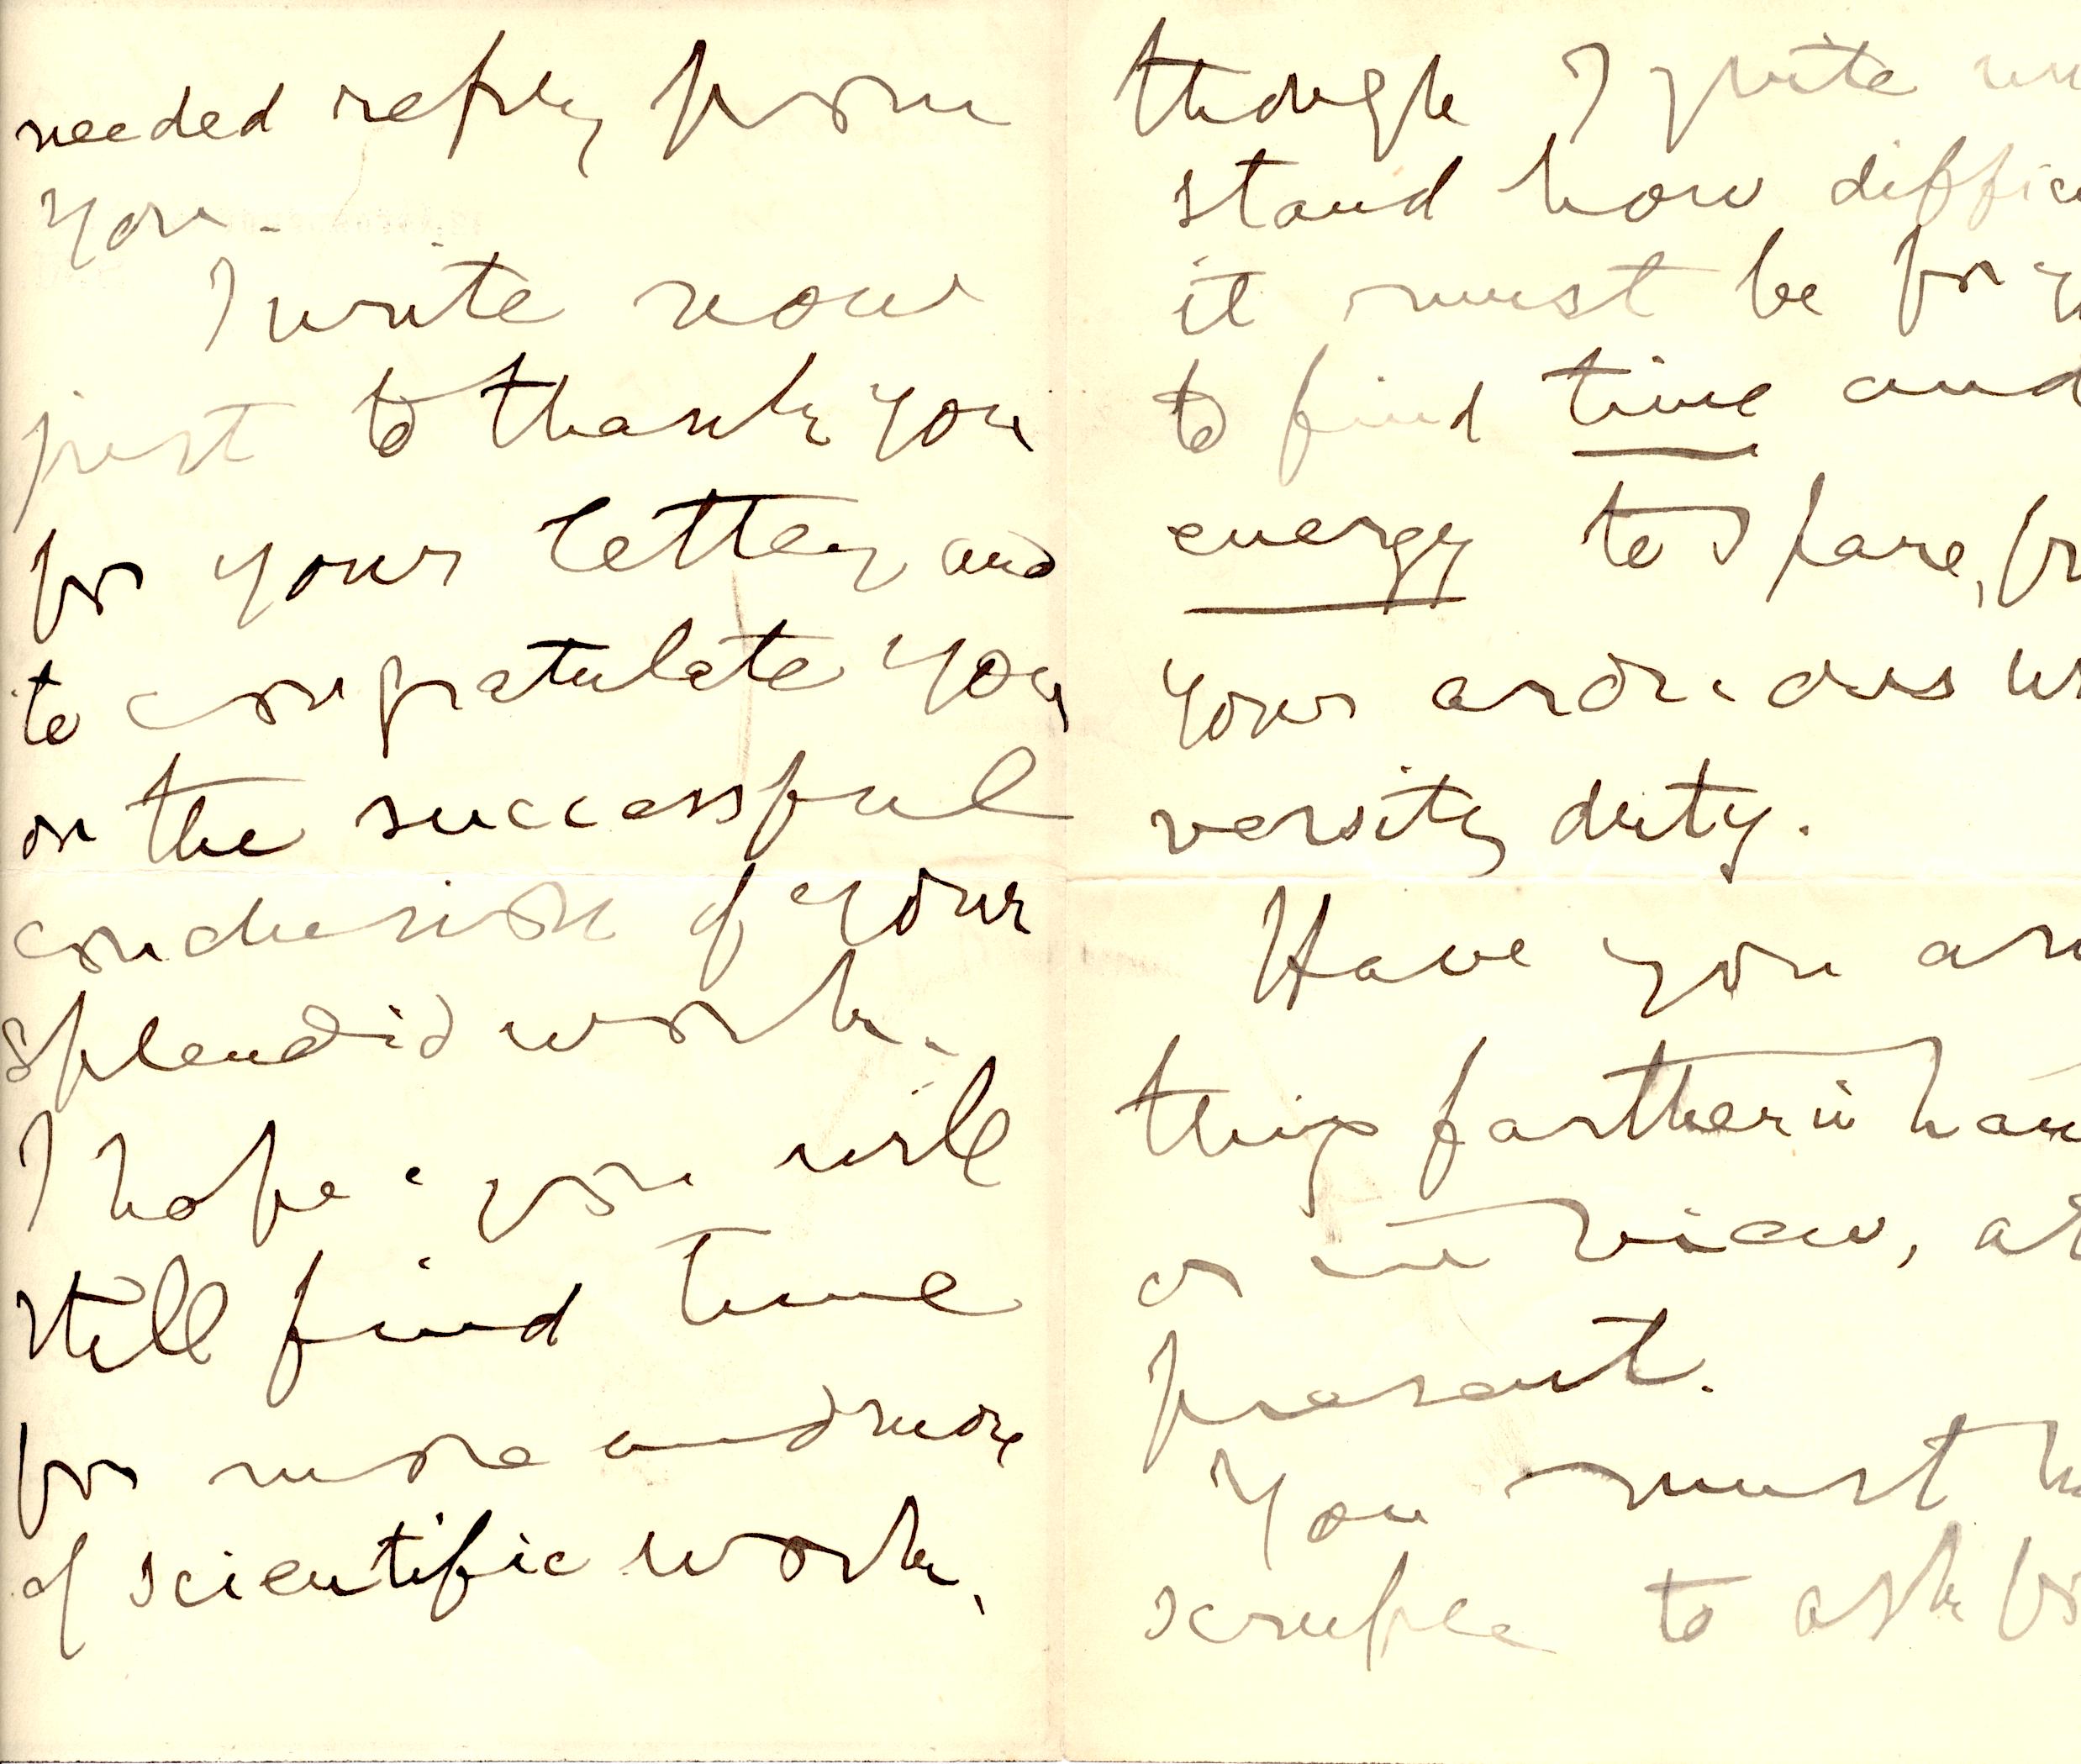 needed reply from
you.
I write now
just to thank you
for your letter and
to congratulate you
on the successful
conclusion of your
splendid work.
I hope you will
still find time
for more and more
of scientific work,
though I quite un
stand how difficu
it must be for y
to find time and
energy to spare, fr
your arduous un
versity duty.
Have you an
thing farther in han
or in view, at
present.
You must h
scruple to ask fo